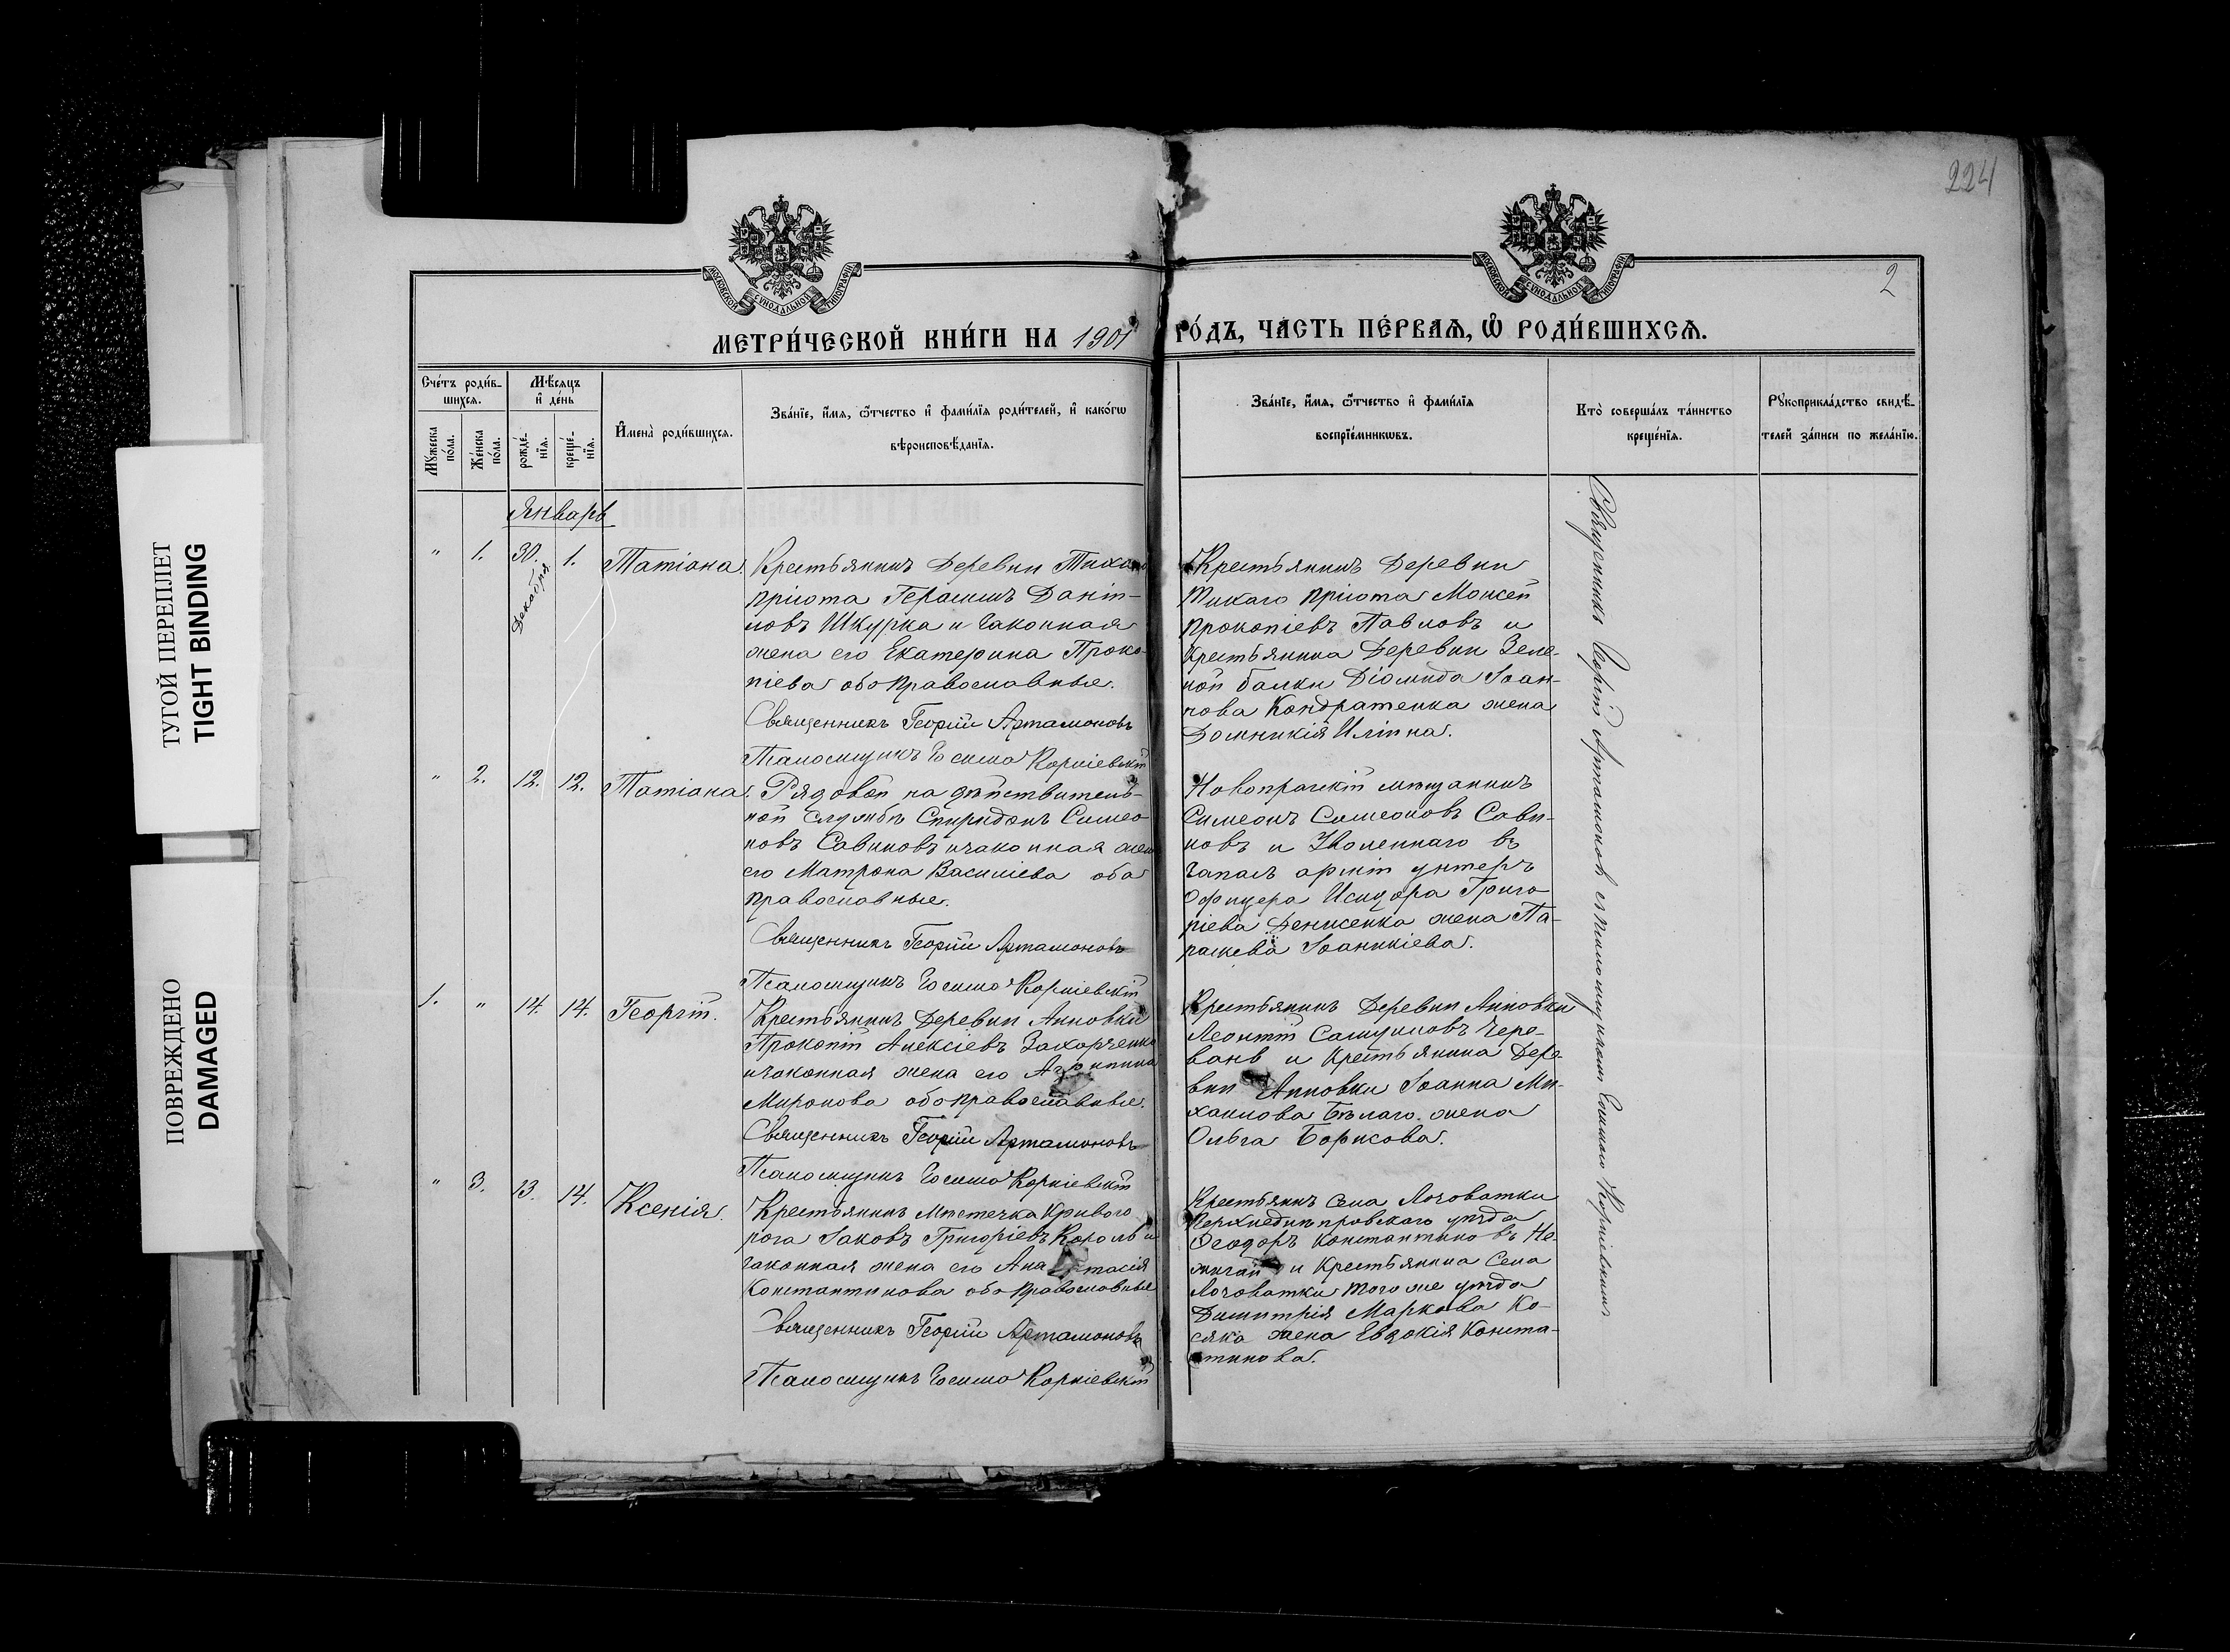 224
2
ТУГОЙ ПЕРЕПЛЕТ
TIGHT BINDING
ПОВРЕЖДЕНО
DAMAGED
МОСКОВСКОЙ СУНОДАЛЬНОЙ ТИПОГРАФІИ
МОСКОВСКОЙ СУНОДАЛЬНОЙ ТИПОГРАФІИ
МЕТРИ́ЧЕСКОЙ КНИ́ГИ НА 1901 ГО́ДЪ, ЧА́СТЬ ПЕ́РВАѦ, Ѡ҆ РОДИ́ВШИХСѦ.
Сче́тъ роди́в-
шихсѧ.
Мꙋ́жеска
по́ла.
Же́нска
по́ла.
Мѣ́сѧцъ
и҆ де́нь
рожде́-
нїѧ.
креще́-
нїѧ.
И҆мена̀ роди́вшихсѧ.
Зва́нїе, и҆́мѧ, ѻ҆́тчество и҆ фами́лїѧ роди́телей, и҆ како́гѡ
вѣроисповѣ́данїѧ.
Зва́нїе, и҆́мѧ, ѻ҆́тчество и҆ фами́лїѧ
воспрїе́мникѡвъ.
Кто̀ соверша́лъ та́инство
креще́нїѧ.
Рꙋкоприкла́дство свидѣ́-
телей за́писи по жела́нїю.
Январь
" 1. 30. Декабря 1. Татіана.
Крестьянинъ Деревни Тихаго
пріюта Герасимъ Даніи-
ловъ Шкурка и законная
жена его Екатерина Проко-
піева оба православные.
Священникъ Георгій Артамоновъ
Псаломщикъ Корніевскій
Крестьянинъ Деревни
Тихаго пріюта Моисей
Прокопіевъ Павловъ и
крестьянина Деревни Зеле-
ной балки Діомида Іоан-
нова Кондратенка жена
Домникія Иліина.
" 2. 12. 12. Татіана.
Рядовой на дѣйствитель-
ной службѣ Спиридонъ Симео-
новъ Савиновъ и законная жена
его Матрона Василіева оба
православные.
Священникъ Георгій Артамоновъ
Псаломщикъ Корніевскій
Новопражскій мѣщанинъ
Симеонъ Симеоновъ Сави-
новъ и Уволеннаго въ
запасъ арміи унтеръ
офицера Исидора Григо-
ріева Денисенка жена Па-
раскева Іоаникіева.
1. " 14. 14. Георгій.
Крестьянинъ Деревни Анновки
Прокопій Алексіевъ Захарченко
и законная жена его Агрипина
Миронова оба православные.
Священникъ Георгій Артамоновъ
Псаломщикъ Корніевскій
Крестьянинъ Деревни Анновки
Леонтій Самуиловъ Чере-
вань и Крестьянина Дере-
вни Анновки Іоанна Ми-
хаилова Бѣлаго жена
Ольга Борисова.
" 3. 13. 14. Ксенія.
Крестьянинъ Мѣстечка Кривого
рога Іаковъ Григоріевъ Король и
законная жена его Анастасія
Константинова оба православные
Священникъ Георгій Артамоновъ
Псаломщикъ Корніевскій
Крестьянинъ Села Лозоватки
Верхнеднѣпровскаго уѣзда
Ѳеодоръ Константиновъ Не-
и Крестьянина Села
Лозоватки того же уѣзда
Димитрія Маркова Ко-
сяка жена Евдокія Конста-
нтинова.
Священникъ Георгій Артамоновъ съ псаломщикомъ Корніевскимъ